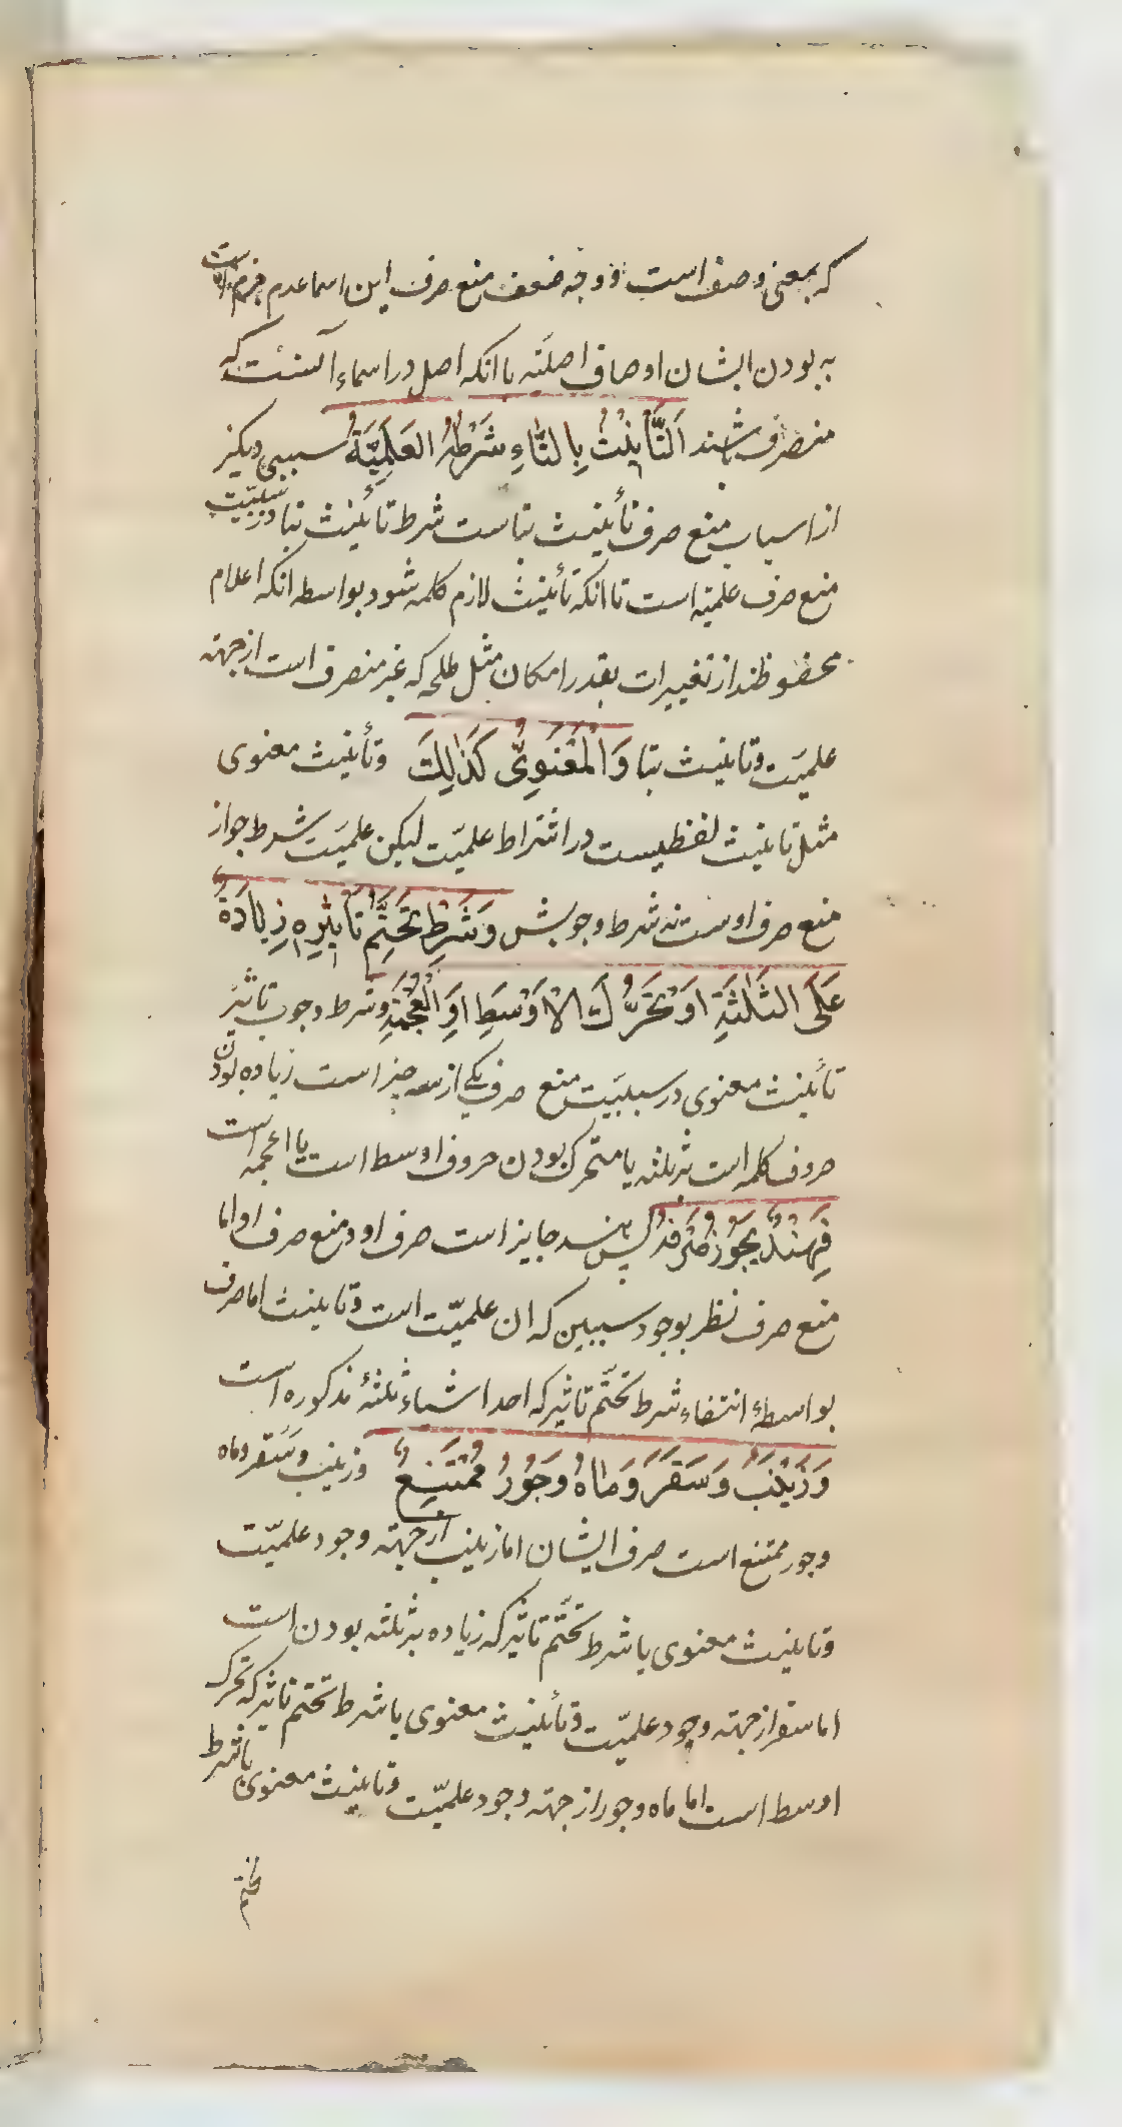 که بمعنی وصف است و وجه ضعف منع صرف این اسما عدم جزم است
به بودن ایشان اوصاف اصلیّه با آنکه اصل در اسماء آنست که
منصرف باشند اَلتَّأنِیْثُ بِالتَّاءِ شَرْطُهُ العَلَمِیَّةُ سببی دیگر
از اسباب منع صرف تأنیث بتاست شرط تأنیث بتا در سببیّت
منع صرف علمیّه است تا آنکه تأنیث لازم کلمه شود بواسطه انکه اعلام
محفوظند از تغییرات بقدر امکان مثل طلحه که غیر منصرف است از جهته
علمیّت و تانیث بتا وَالْمَعْنَوِیُّ کَذٰلِكَ وتأنیث معنوی
مثل تانیث لفظیست در اشتراط علمیّت لیکن علمیّت شرط جواز
منع صرف اوست نه شرط وجوبش وَشَرْطُ تَحَتُّمِ تَاثِیْرِهِ زِیَادَةٌ
عَلَی الثَّلٰثَةِ اَوْ تَحَرُّكُ الْاَوْسَطِ اَوِ الْعُجْمَةِ وشرط وجوب تاثیر
تأنیث معنوی در سببیّت منع صرف یکی از سه چیز است زیاده بودن
حروف کلمه است بر ثلثه یا متحرک بودن حروف اوسط است یا اعجمه است
فَهِنْدٌ یَجُوْزُ صَرْفُهُ پس هند جایز است صرف او و منع صرف او اما
منع صرف نظر بوجود سببین که ان علمیّت است وتانیث اما صرف
بواسطهٔ انتفاء شرط تحتّم تاثیر که احد اشیاء ثلثهٔ مذکوره است
وَزَیْنَبُ وَسَقَرُ وَمَاهُ وَجَوْرُ مُمْتَنِعٌ وزینب وسقر وماه
وجور ممتنع است صرف ایشان اما زینب از جهته وجود علمیّت
وتانیث معنوی با شرط تحتّم تاثیر که زیاده بر ثلثه بودن است
اما سقر از جهته وجود علمیّت وتأنیث معنوی با شرط تحتم تاثیر که تحرک
اوسط است اما ماه وجور از جهته وجود علمیّت وتانیث معنوی با شرط
تحتم